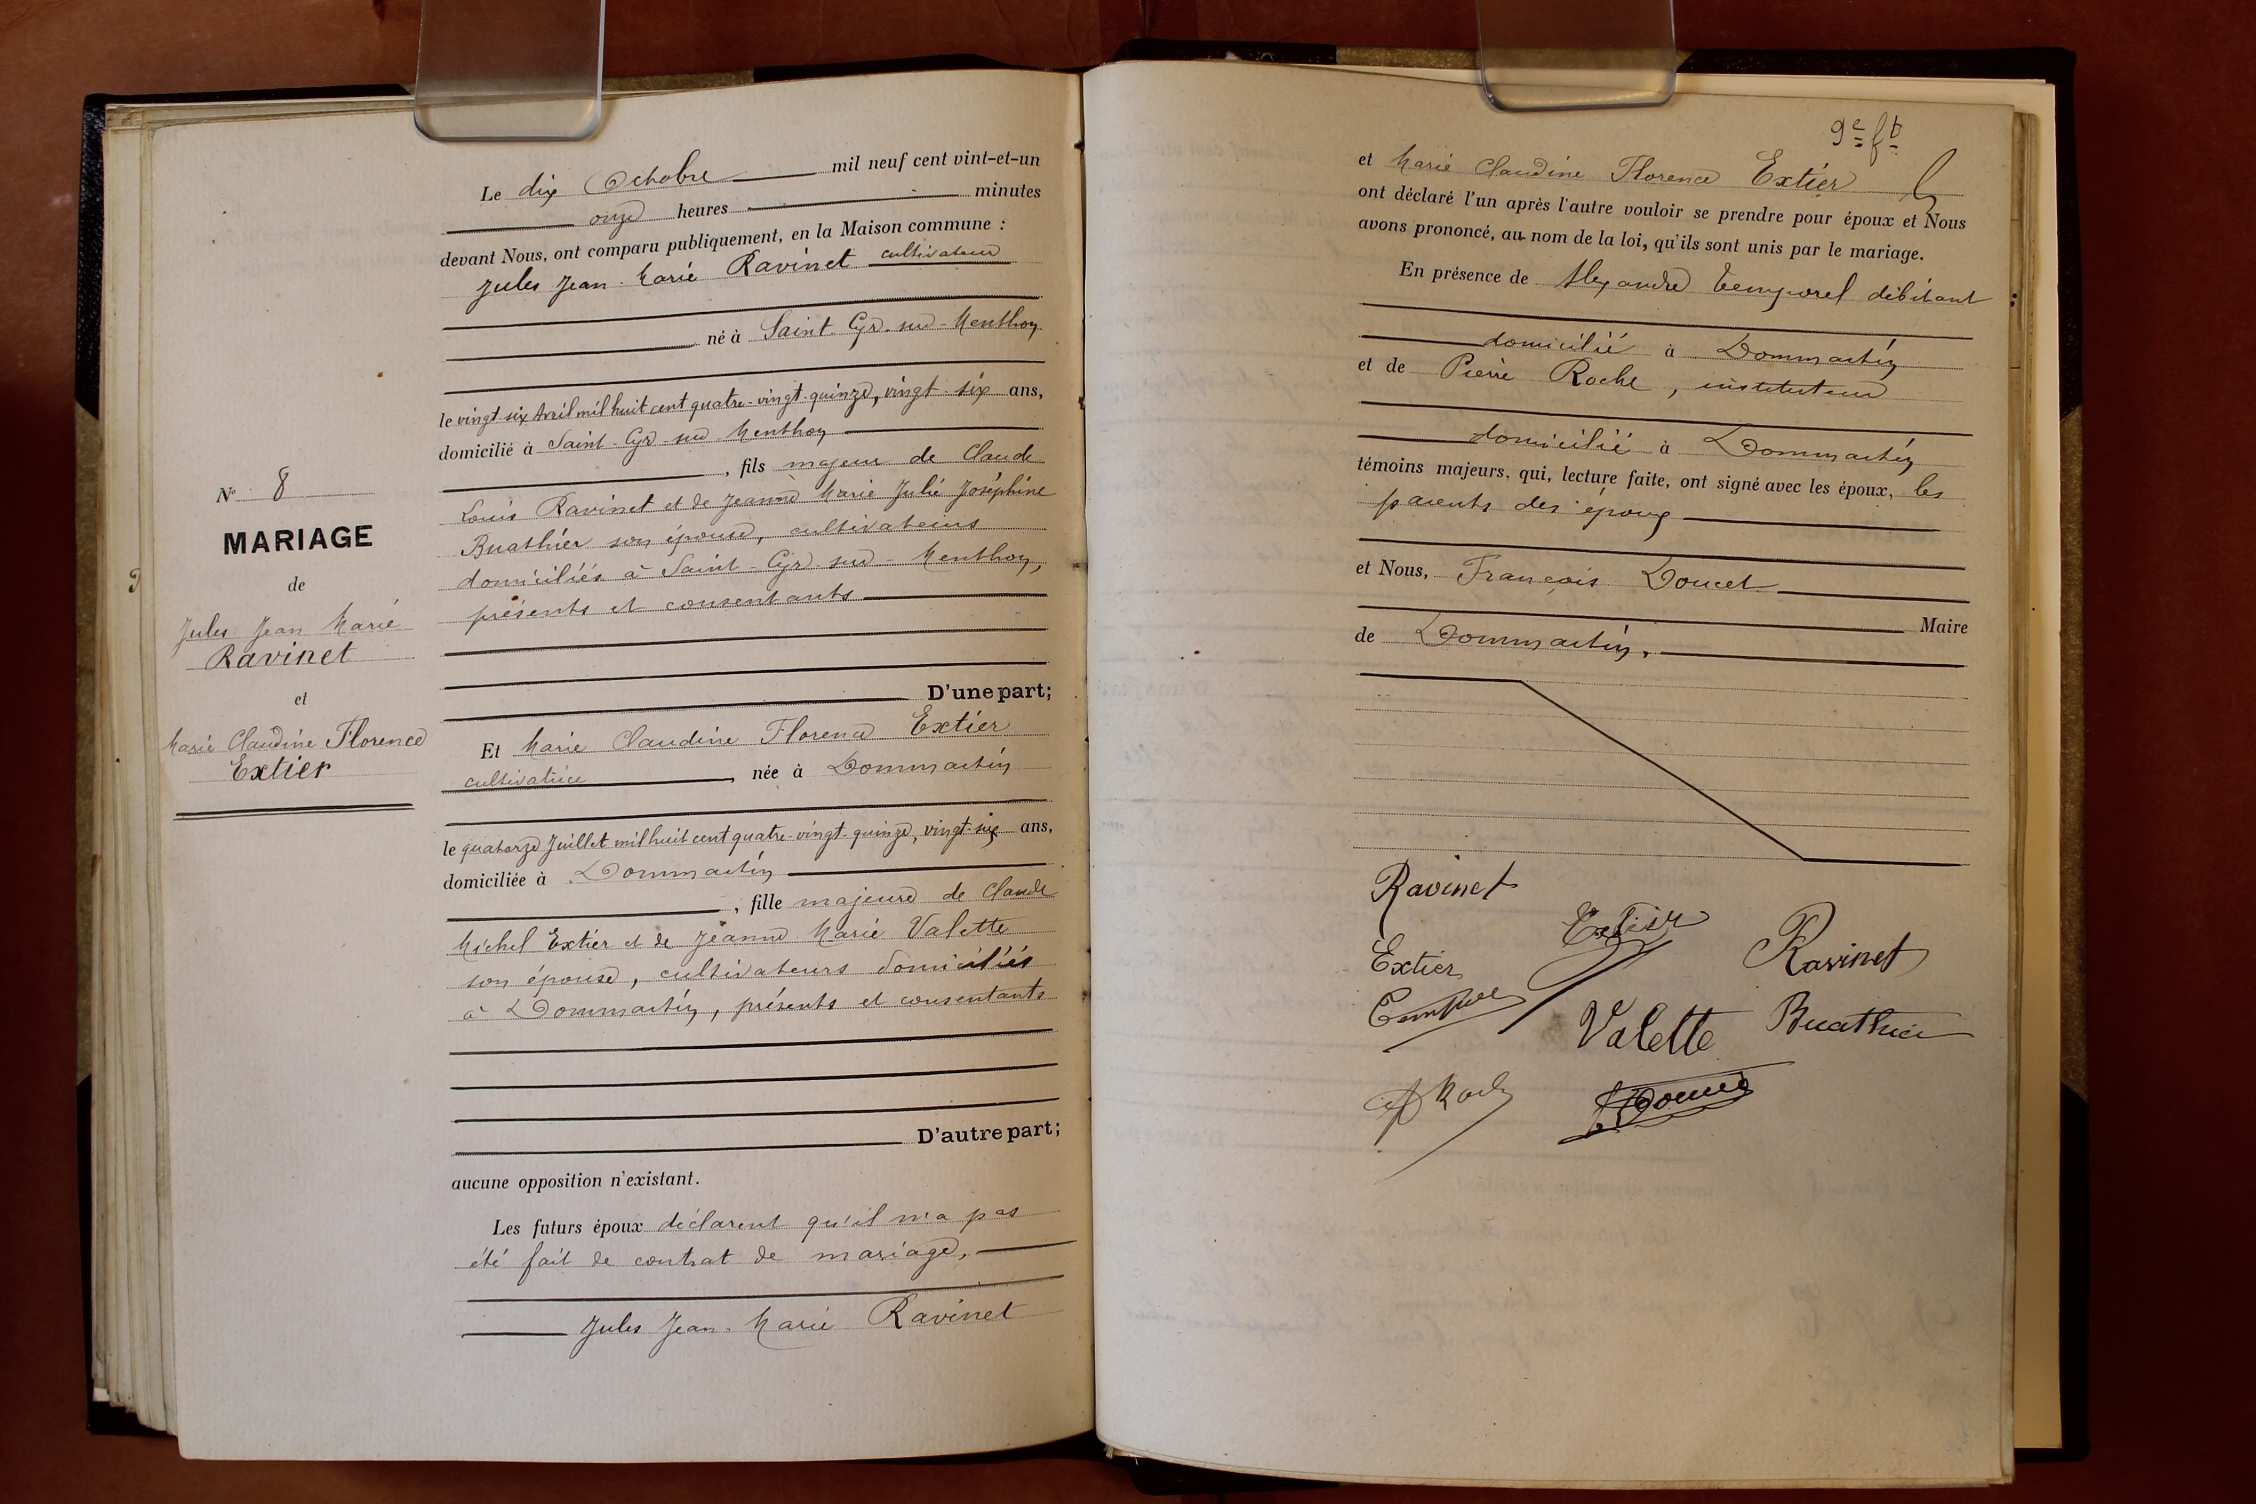 N° 8
MARIAGE
de
Jules Jean Marie
Ravinet
et
Marie Claudine Florence
Extier
Le dix Octobre mil neuf cent vint-et-un
onze heures minutes
devant Nous, ont comparu publiquement, en la Maison commune :
Jules Jean-Marie Ravinet cultivateur
né à Saint-Cyr-sur-Menthon
le vingt-six Avril mil huit cent quatre-vingt-quinze, vingt-six ans,
domicilié à Saint-Cyr-sur-Menthon
, fils majeur de Claude
Louis Ravinet et de Jeanne Marie Julie Joséphine
Buathier son épouse, cultivateurs
domiciliés à Saint-Cyr-sur-Menthon,
présents et consentants
D'une part;
Et Marie Claudine Florence Extier
cultivatrice, née à Dommartin
le quatorze Juillet mil huit cent quatre-vingt-quinze, vingt-six ans,
domiciliée à Dommartin
, fille majeure de Claude
Michel Extier et de Jeanne Marie Valette
son épouse, cultivateurs domiciliés
à Dommartin, présents et consentants
D'autre part;
aucune opposition n'existant.
Les futurs époux déclarent qu'il n'a pas
été fait de contrat de mariage.
Jules Jean-Marie Ravinet
9e ft
et Marie Claudine Florence Extier
ont déclaré l'un après l'autre vouloir se prendre pour époux et Nous
avons prononcé, au nom de la loi, qu'ils sont unis par le mariage.
En présence de Alexandre Temporel débitant
domicilié à Dommartin
et de Pierre Roche, instituteur
domicilié à Dommartin
témoins majeurs, qui, lecture faite, ont signé avec les époux, les
parents des époux
et Nous, François Doucet
Maire
de Dommartin.
Ravinet
Extier
Extier
Ravinet
Temporel
Valette
Buathier
Roche
Doucet